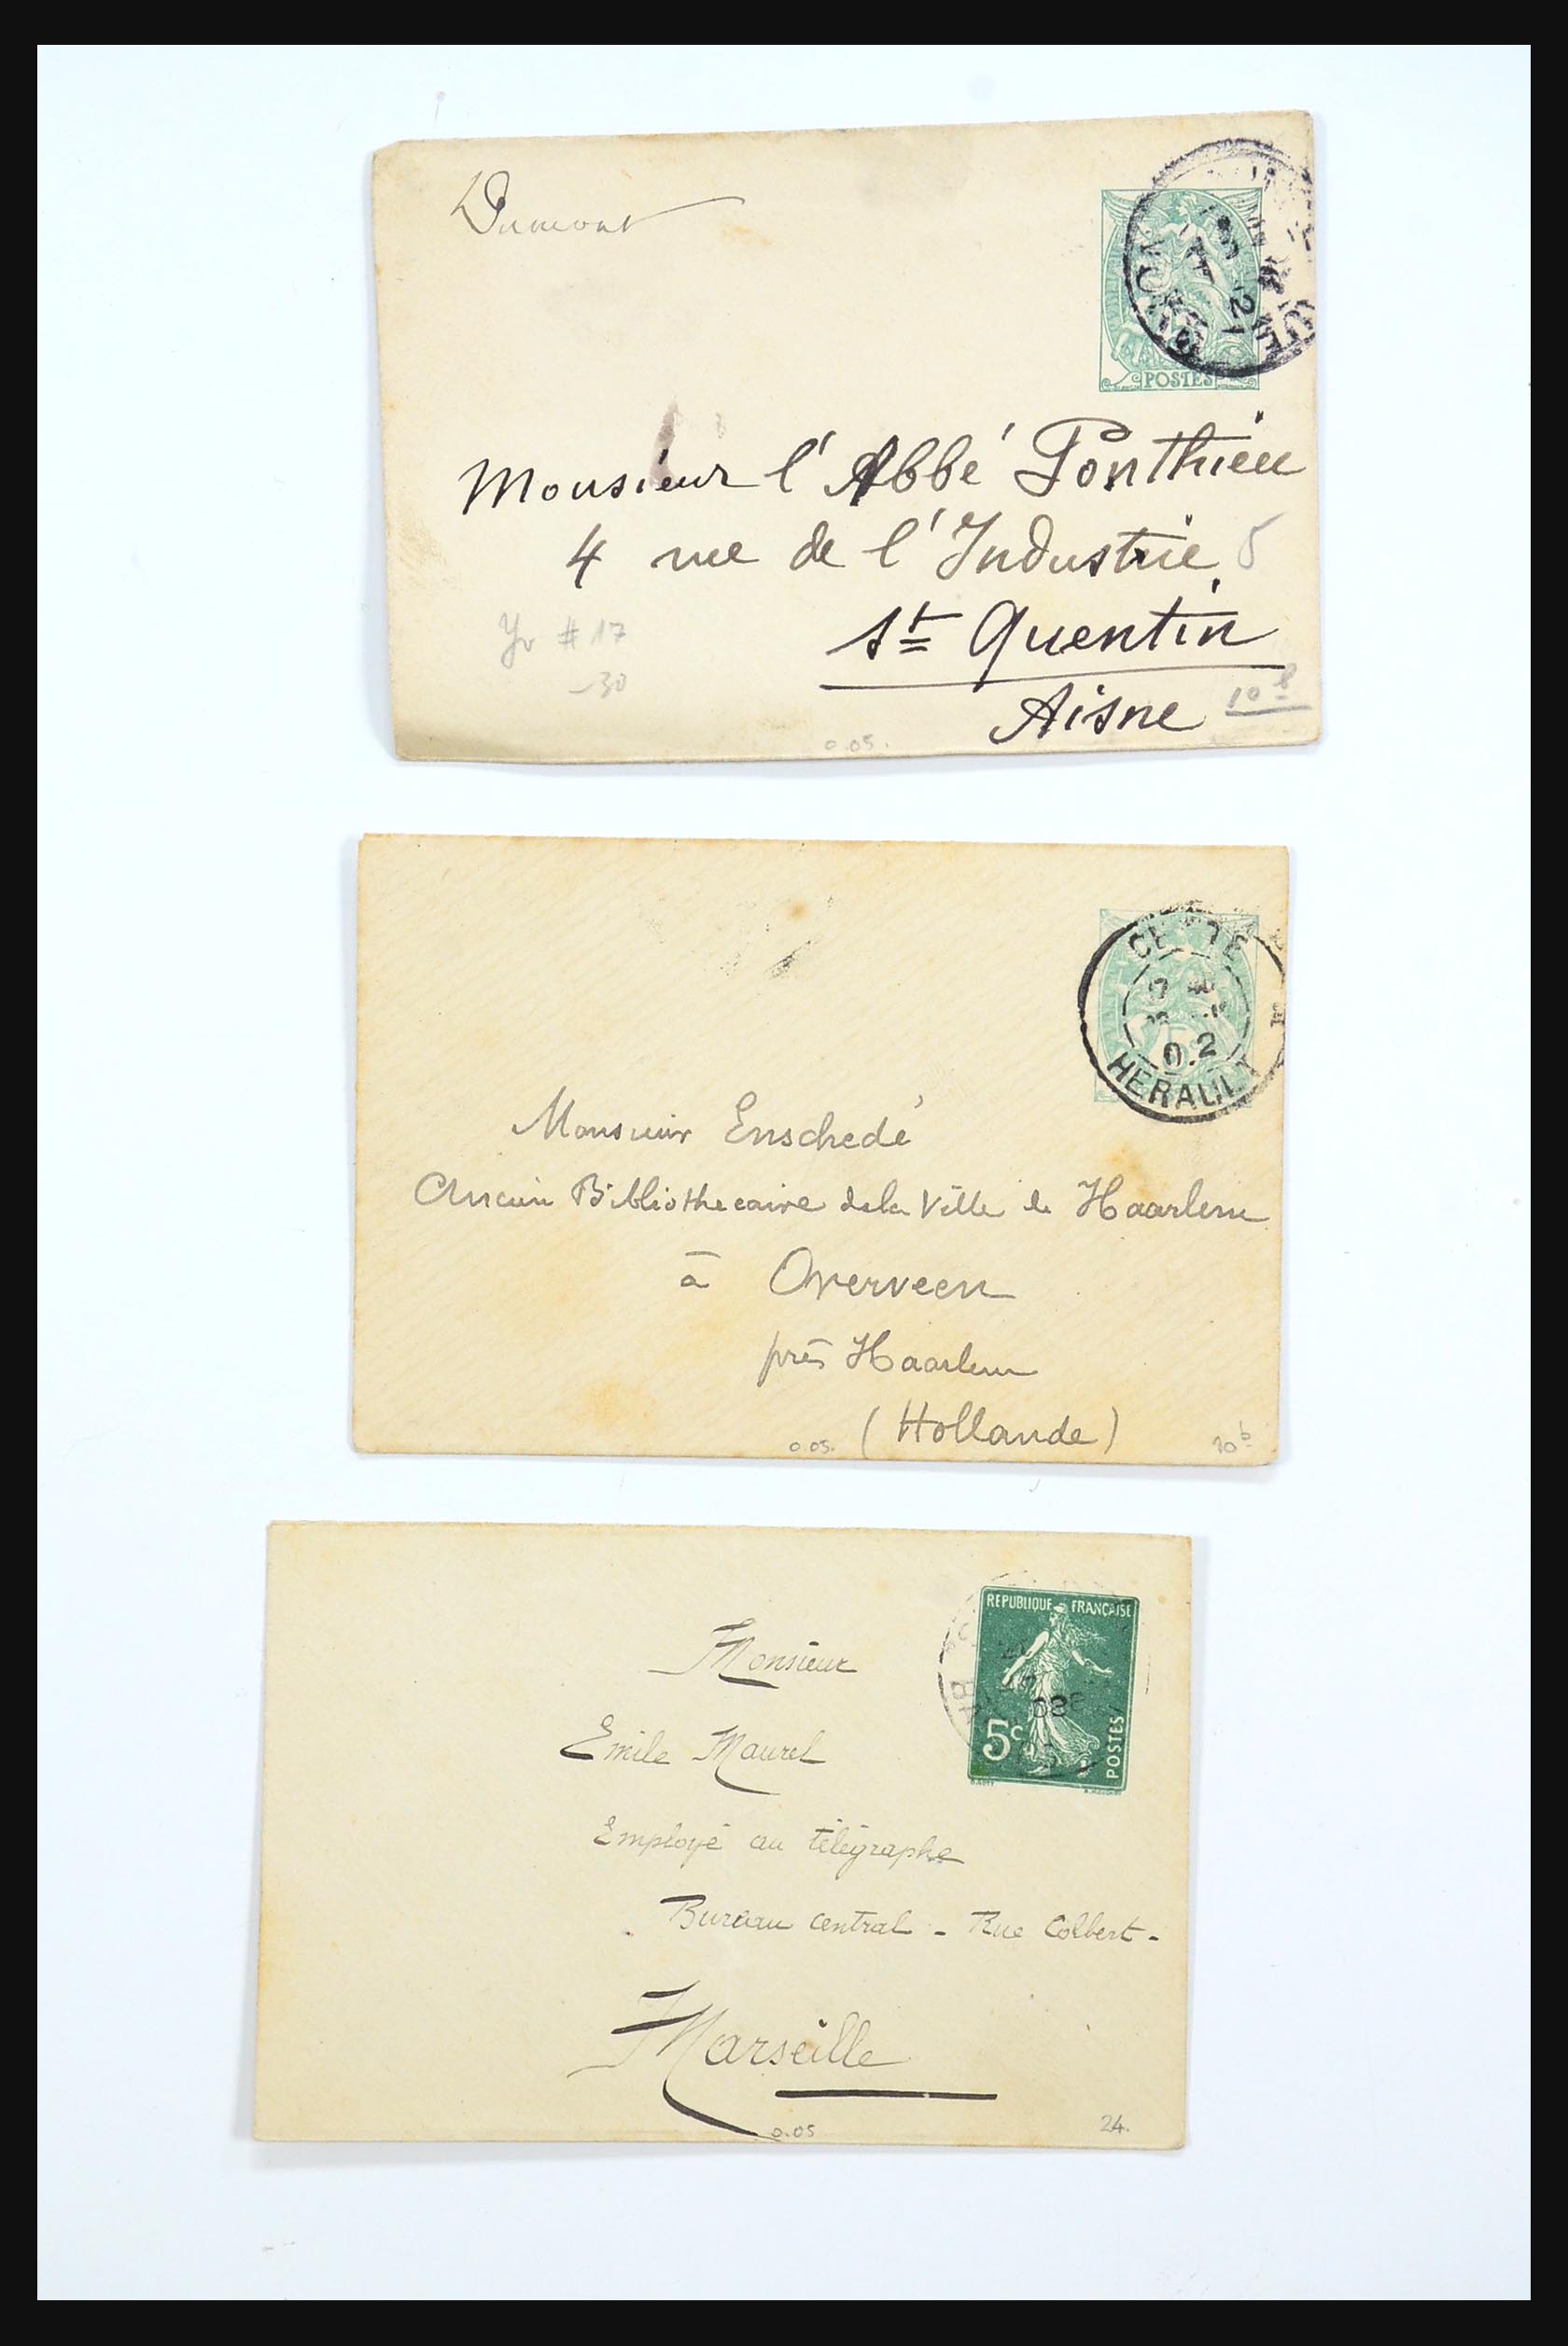 Dumont
POSTES
21
Monsieur l'Abbé Ponthieu
4 rue de l'Industrie 5
St Quentin
Aisne
Yv #17
-30
10
0.05.
CETTE
02
HERAULT
Monsieur Enschedé
Ancien Bibliothecaire de la Ville de Haarlem
à Overveen
près Haarlem
(Hollande)
0.05.
10b
REPUBLIQUE FRANÇAISE
08
5c
POSTES
Monsieur
Emile Maurel
Employé au télégraphe
Bureau central - Rue Colbert -
Marseille
0.05
24.